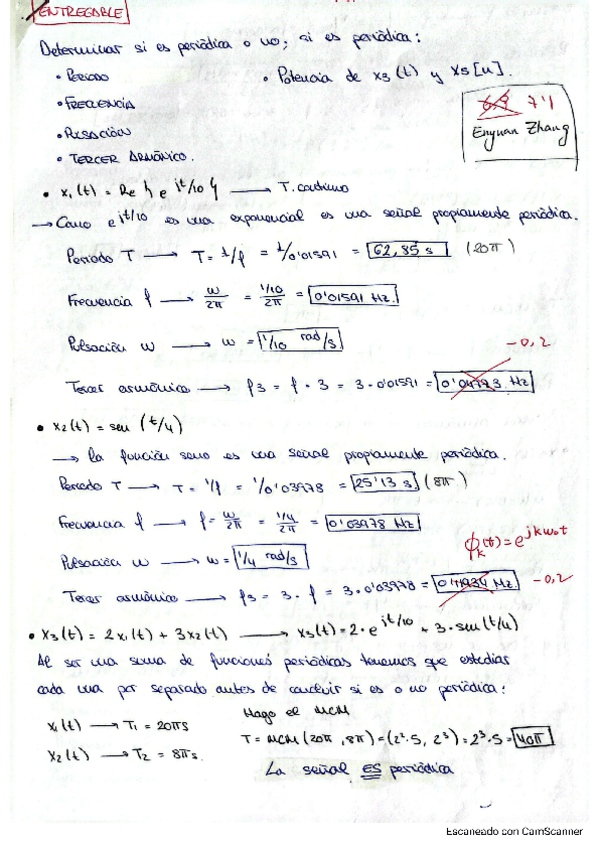 ENTREGABLE
Determinar si es periódica o no; si es periódica:
• PERIODO
• Potencia de x3(t) y x5[n].
• FRECUENCIA
• PULSACIÓN
• TERCER ARMÓNICO.
6,9 7'1
Enyuan Zhang
• x₁(t) = Re { e^{it/10} } → T. continuo
→ Como e^{it/10} es una exponencial es una señal propiamente periódica.
Periodo T → T = 1/f = 1/0'01591 = 62,85 s (20π)
Frecuencia f → w/2π = 1/10/2π = 0'01591 Hz.
Pulsación w → w = 1/10 rad/s
- 0,2
Tercer armónico → f3 = f · 3 = 3 · 0'01591 = 0'04773 Hz
• x₂(t) = sen (t/4)
→ la función seno es una señal propiamente periódica.
Periodo T → T = 1/f = 1/0'03978 = 25'13 s (8π)
Frecuencia f → f = w/2π = 1/4/2π = 0'03978 Hz
ϕₖ(t) = e^{jkw₀t}
Pulsación w → w = 1/4 rad/s
Tercer armónico → f3 = 3 · f = 3 · 0'03978 = 0'11934 Hz. - 0,2
• x3(t) = 2x₁(t) + 3x₂(t) → x3(t) = 2 · e^{it/10} + 3 · sen(t/4)
Al ser una suma de funciones periódicas tenemos que estudiar
cada una por separado antes de concluir si es o no periódica:
Hago el MCM
x₁(t) → T₁ = 20πs
T = MCM (20π, 8π) = (2²·5, 2³) = 2³·5 = 40π
x₂(t) → T₂ = 8πs.
La señal ES periódica
Escaneado con CamScanner